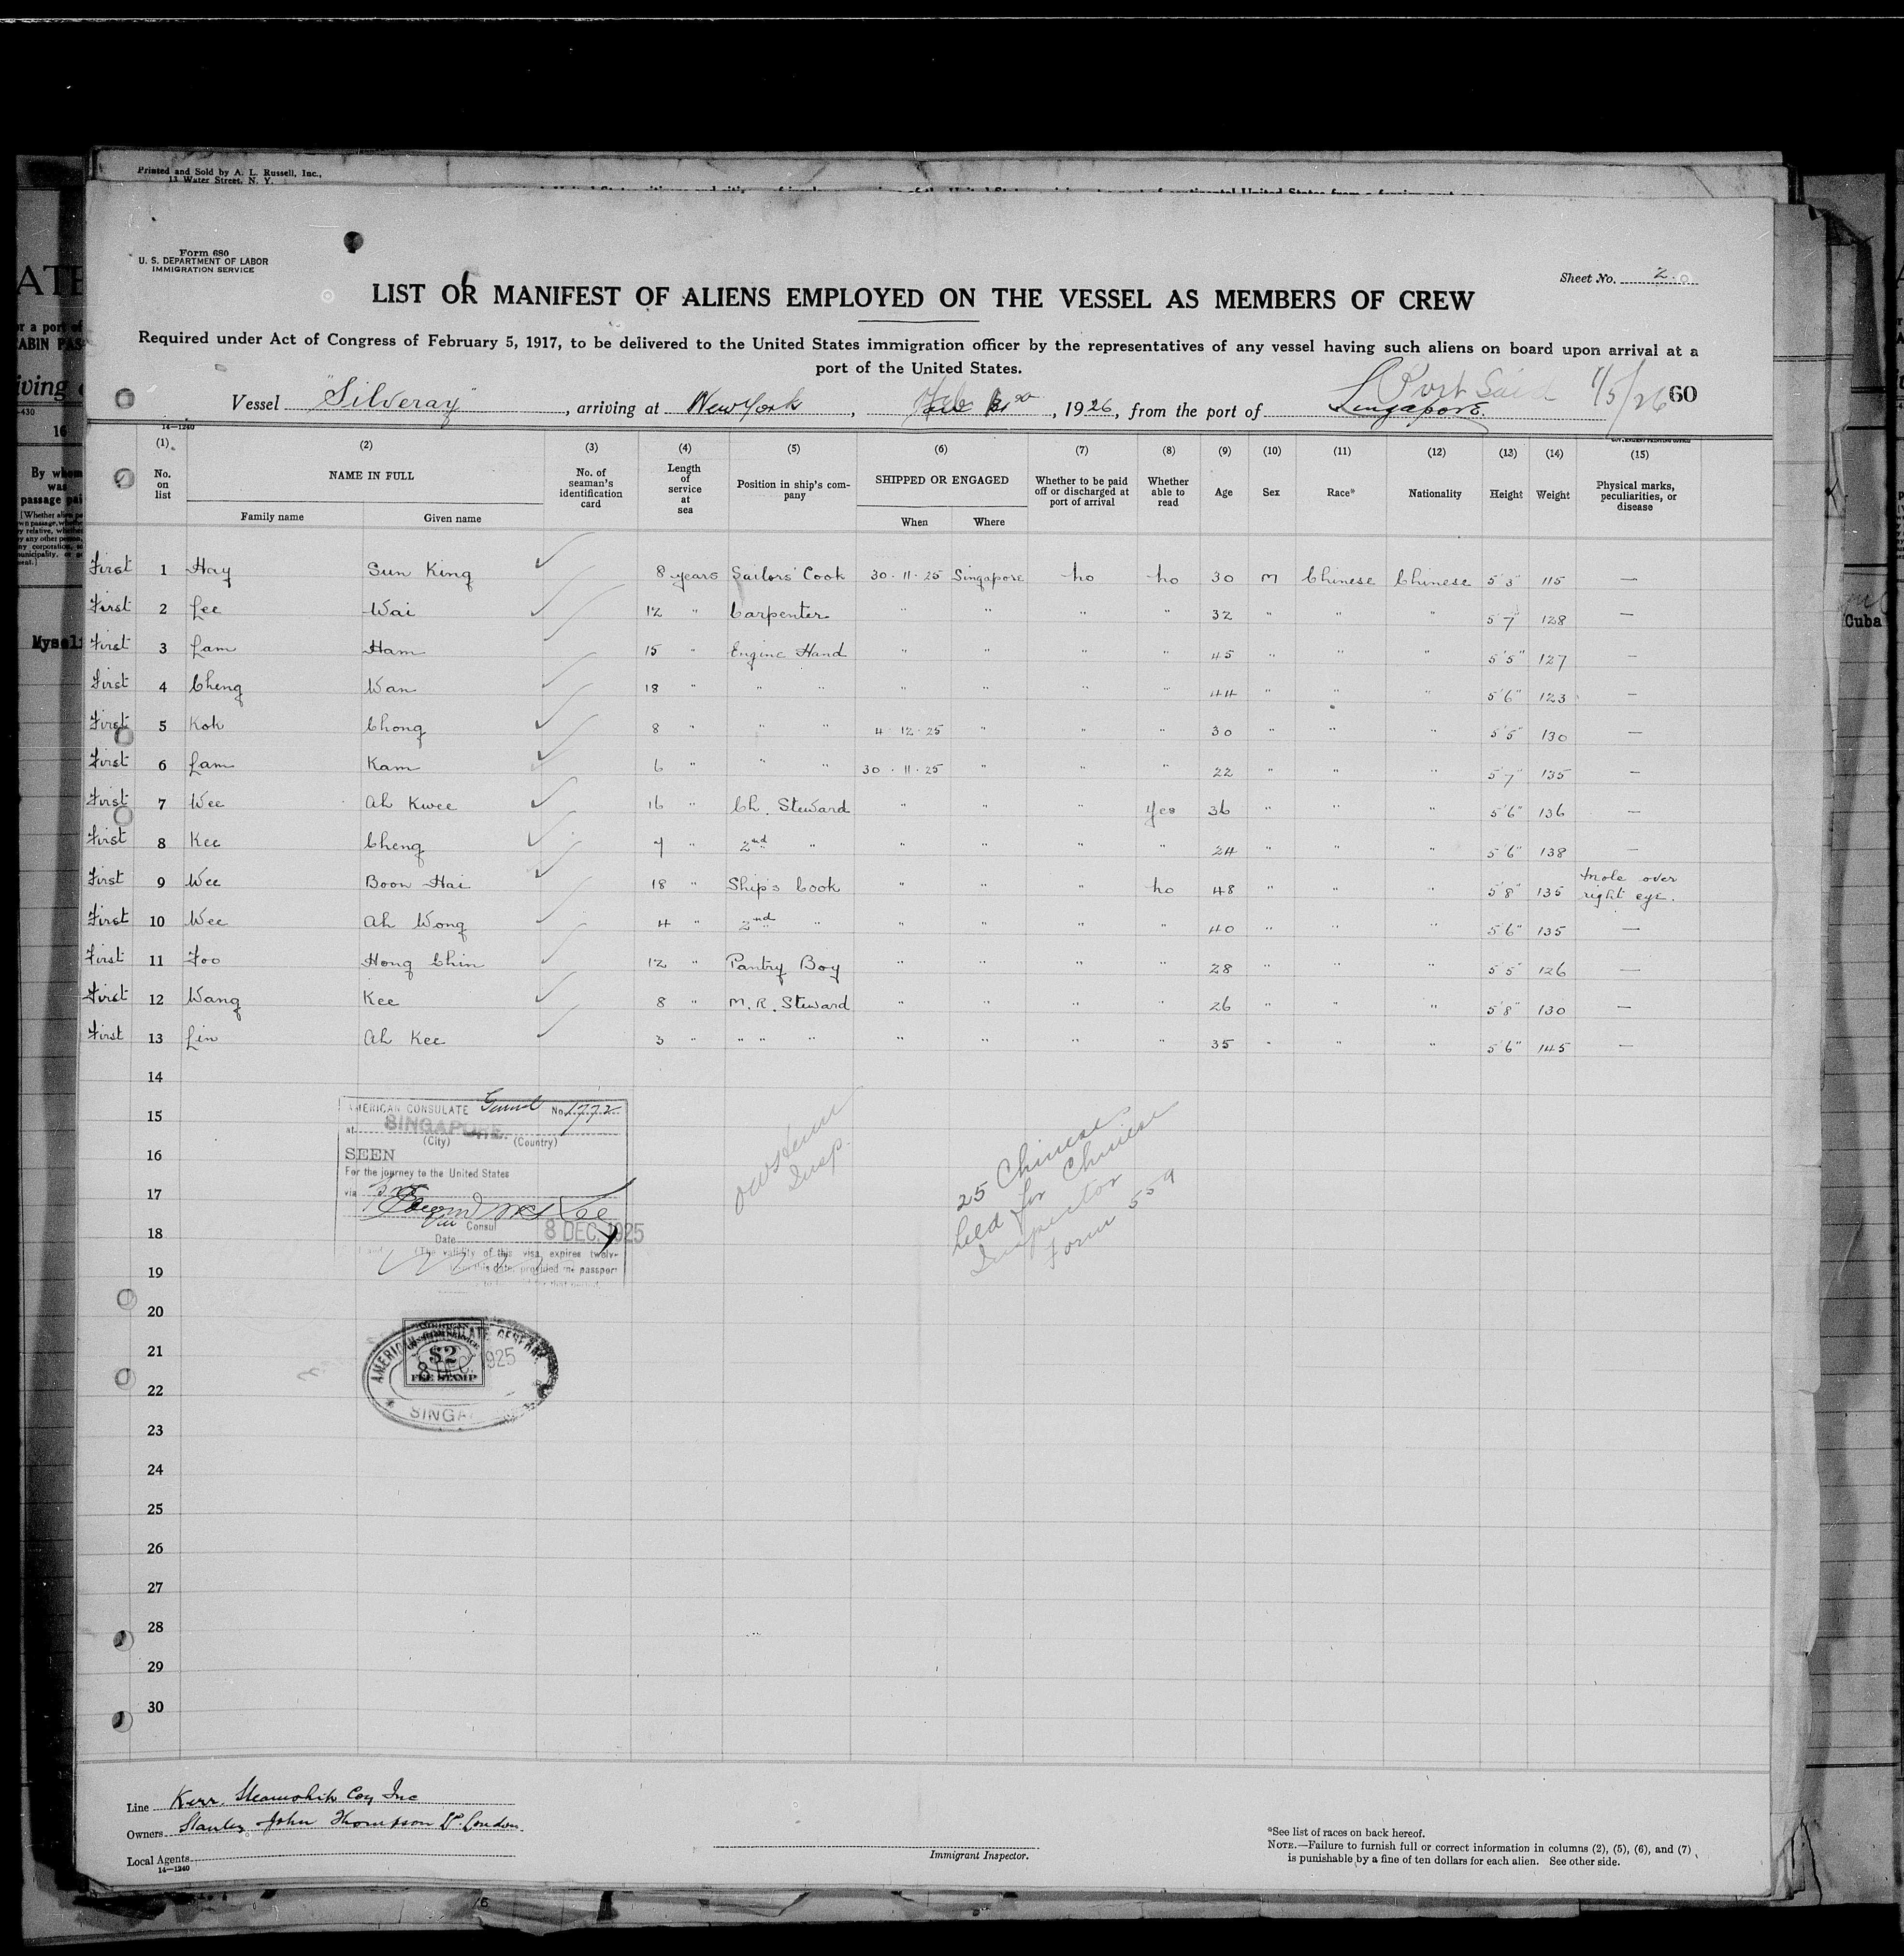 Printed and Sold by A. L. Russell, Inc.,
13 Water Street, N. Y.
Form 680
U. S. DEPARTMENT OF LABOR
IMMIGRATION SERVICE
Sheet No. 2.
LIST OR MANIFEST OF ALIENS EMPLOYED ON THE VESSEL AS MEMBERS OF CREW
Required under Act of Congress of February 5, 1917, to be delivered to the United States immigration officer by the representatives of any vessel having such aliens on board upon arrival at a
port of the United States.
Port Said 1/5/26 60
Vessel "Silveray", arriving at New York, Feb, 1926, from the port of Singapore.
14—1240
(1) (2) (3) (4) (5) (6) (7) (8) (9) (10) (11) (12) (13) (14) (15)
No. on list NAME IN FULL No. of seaman's identification card Length of service at sea Position in ship's company SHIPPED OR ENGAGED Whether to be paid off or discharged at port of arrival Whether able to read Age Sex Race* Nationality Height Weight Physical marks, peculiarities, or disease
Family name Given name When Where
First 1 Hay Sun King 8 years Sailors' Cook 30·11·25 Singapore no no 30 M Chinese Chinese 5'3" 115 —
First 2 Lee Wai 12 " Carpenter " " " " 32 " " " 5'7" 128 —
First 3 Lam Ham 15 " Engine Hand " " " " 45 " " " 5'5" 127 —
First 4 Cheng Wan 18 " " " " " " " 44 " " " 5'6" 123 —
First 5 Kok Chong 8 " " " 4·12·25 " " " 30 " " " 5'5" 130 —
First 6 Lam Kam 6 " " " 30·11·25 " " " 22 " " " 5'7" 135 —
First 7 Wee Ah Kwee 16 " Ch. Steward " " " Yes 36 " " " 5'6" 136 —
First 8 Kee Cheng 7 " 2nd " " " " " 24 " " " 5'6" 138 —
First 9 Wee Boon Hai 18 " Ship's Cook " " " no 48 " " " 5'8" 135 Mole over right eye.
First 10 Wee Ah Wong 4 " 2nd " " " " " 40 " " " 5'6" 135 —
First 11 Foo Hong Chin 12 " Pantry Boy " " " " 28 " " " 5'5" 126 —
First 12 Wang Kee 8 " M.R. Steward " " " " 26 " " " 5'8" 130 —
First 13 Lin Ah Kee 3 " " " " " " " " 35 " " " 5'6" 145 —
14
15
16
17
18
19
20
21
22
23
24
25
26
27
28
29
30
AMERICAN CONSULATE General No. 1772
at SINGAPORE.
(City) (Country)
SEEN
For the journey to the United States
via
Vice Consul
Date 8 DEC. 1925
(The validity of this visa expires twelve
this date, provided the passport
Insp.
25 Chinese
held for Chinese
Inspector
Form 559
AMERICAN CONSULATE GENERAL
$2
8 DEC. 1925
FEE STAMP
SINGA
Line Kerr Steamship Coy Inc
Owners Stanley John Thompson Ld. London.
Local Agents
14—1240
Immigrant Inspector.
*See list of races on back hereof.
NOTE.—Failure to furnish full or correct information in columns (2), (5), (6), and (7)
is punishable by a fine of ten dollars for each alien. See other side.
Cuba